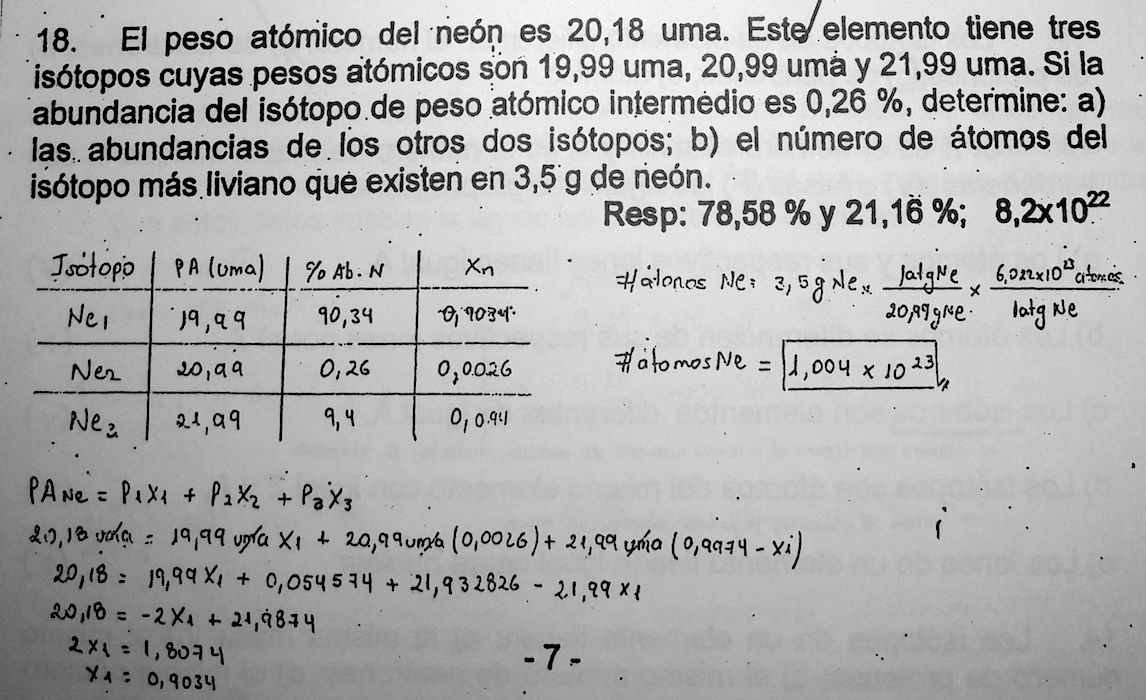 18. El peso atómico del neón es 20,18 uma. Este elemento tiene tres
isótopos cuyas pesos atómicos son 19,99 uma, 20,99 uma y 21,99 uma. Si la
abundancia del isótopo de peso atómico intermedio es 0,26 %, determine: a)
las abundancias de los otros dos isótopos; b) el número de átomos del
isótopo más liviano que existen en 3,5 g de neón.
Resp: 78,58 % y 21,16 %; 8,2x10²²
Isótopo PA (uma) % Ab. N Xn
Ne1 19,99 90,34 0,9034
Ne2 20,99 0,26 0,0026
Ne3 21,99 9,4 0,094
#átonos Ne: 3,5g Ne x 1atgNe / 20,99gNe x 6,022x10²³ átomos / 1atg Ne
#átomosNe = 1,004 x 10²³
PA Ne = P1X1 + P2X2 + P3X3
20,18 uma = 19,99 uma X1 + 20,99uma (0,0026) + 21,99 uma (0,9974 - X1)
20,18 = 19,99 X1 + 0,054574 + 21,932826 - 21,99 X1
20,18 = -2X1 + 21,9874
2X1 = 1,8074
X1 = 0,9034
- 7 -